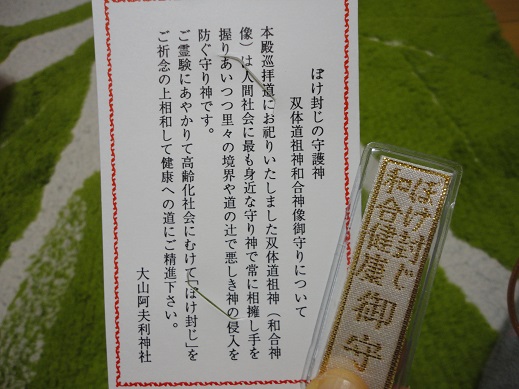 ぼけ封じの守護神
双体道祖神和合神像御守りについて
本殿巡拝道にお祀りいたしました双体道祖神（和合神
像）は人間社会に最も身近な守り神で常に相擁し手を
握りあいつつ里々の境界や道の辻で悪しき神の侵入を
防ぐ守り神です。
ご霊験にあやかりて高齢化社会にむけて「ぼけ封じ」を
ご祈念の上相和して健康への道にご精進下さい。
大山阿夫利神社
ぼけ封じ
和合健康
御守